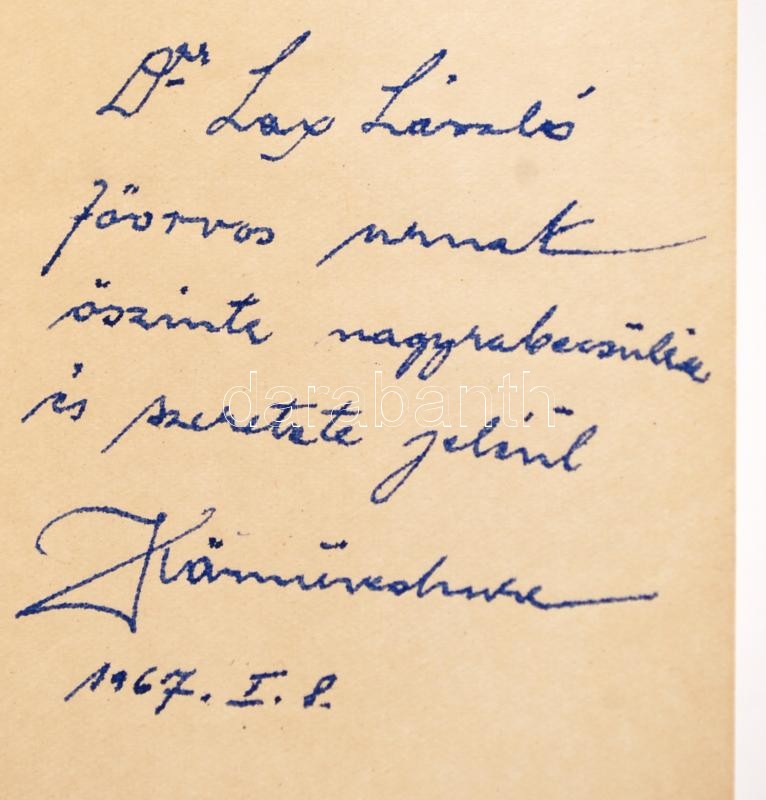 Dr Lax László
főorvos urnak
őszinte nagyrabecsülése
és szeretete jeléül
1967. I. 8.
darabanth